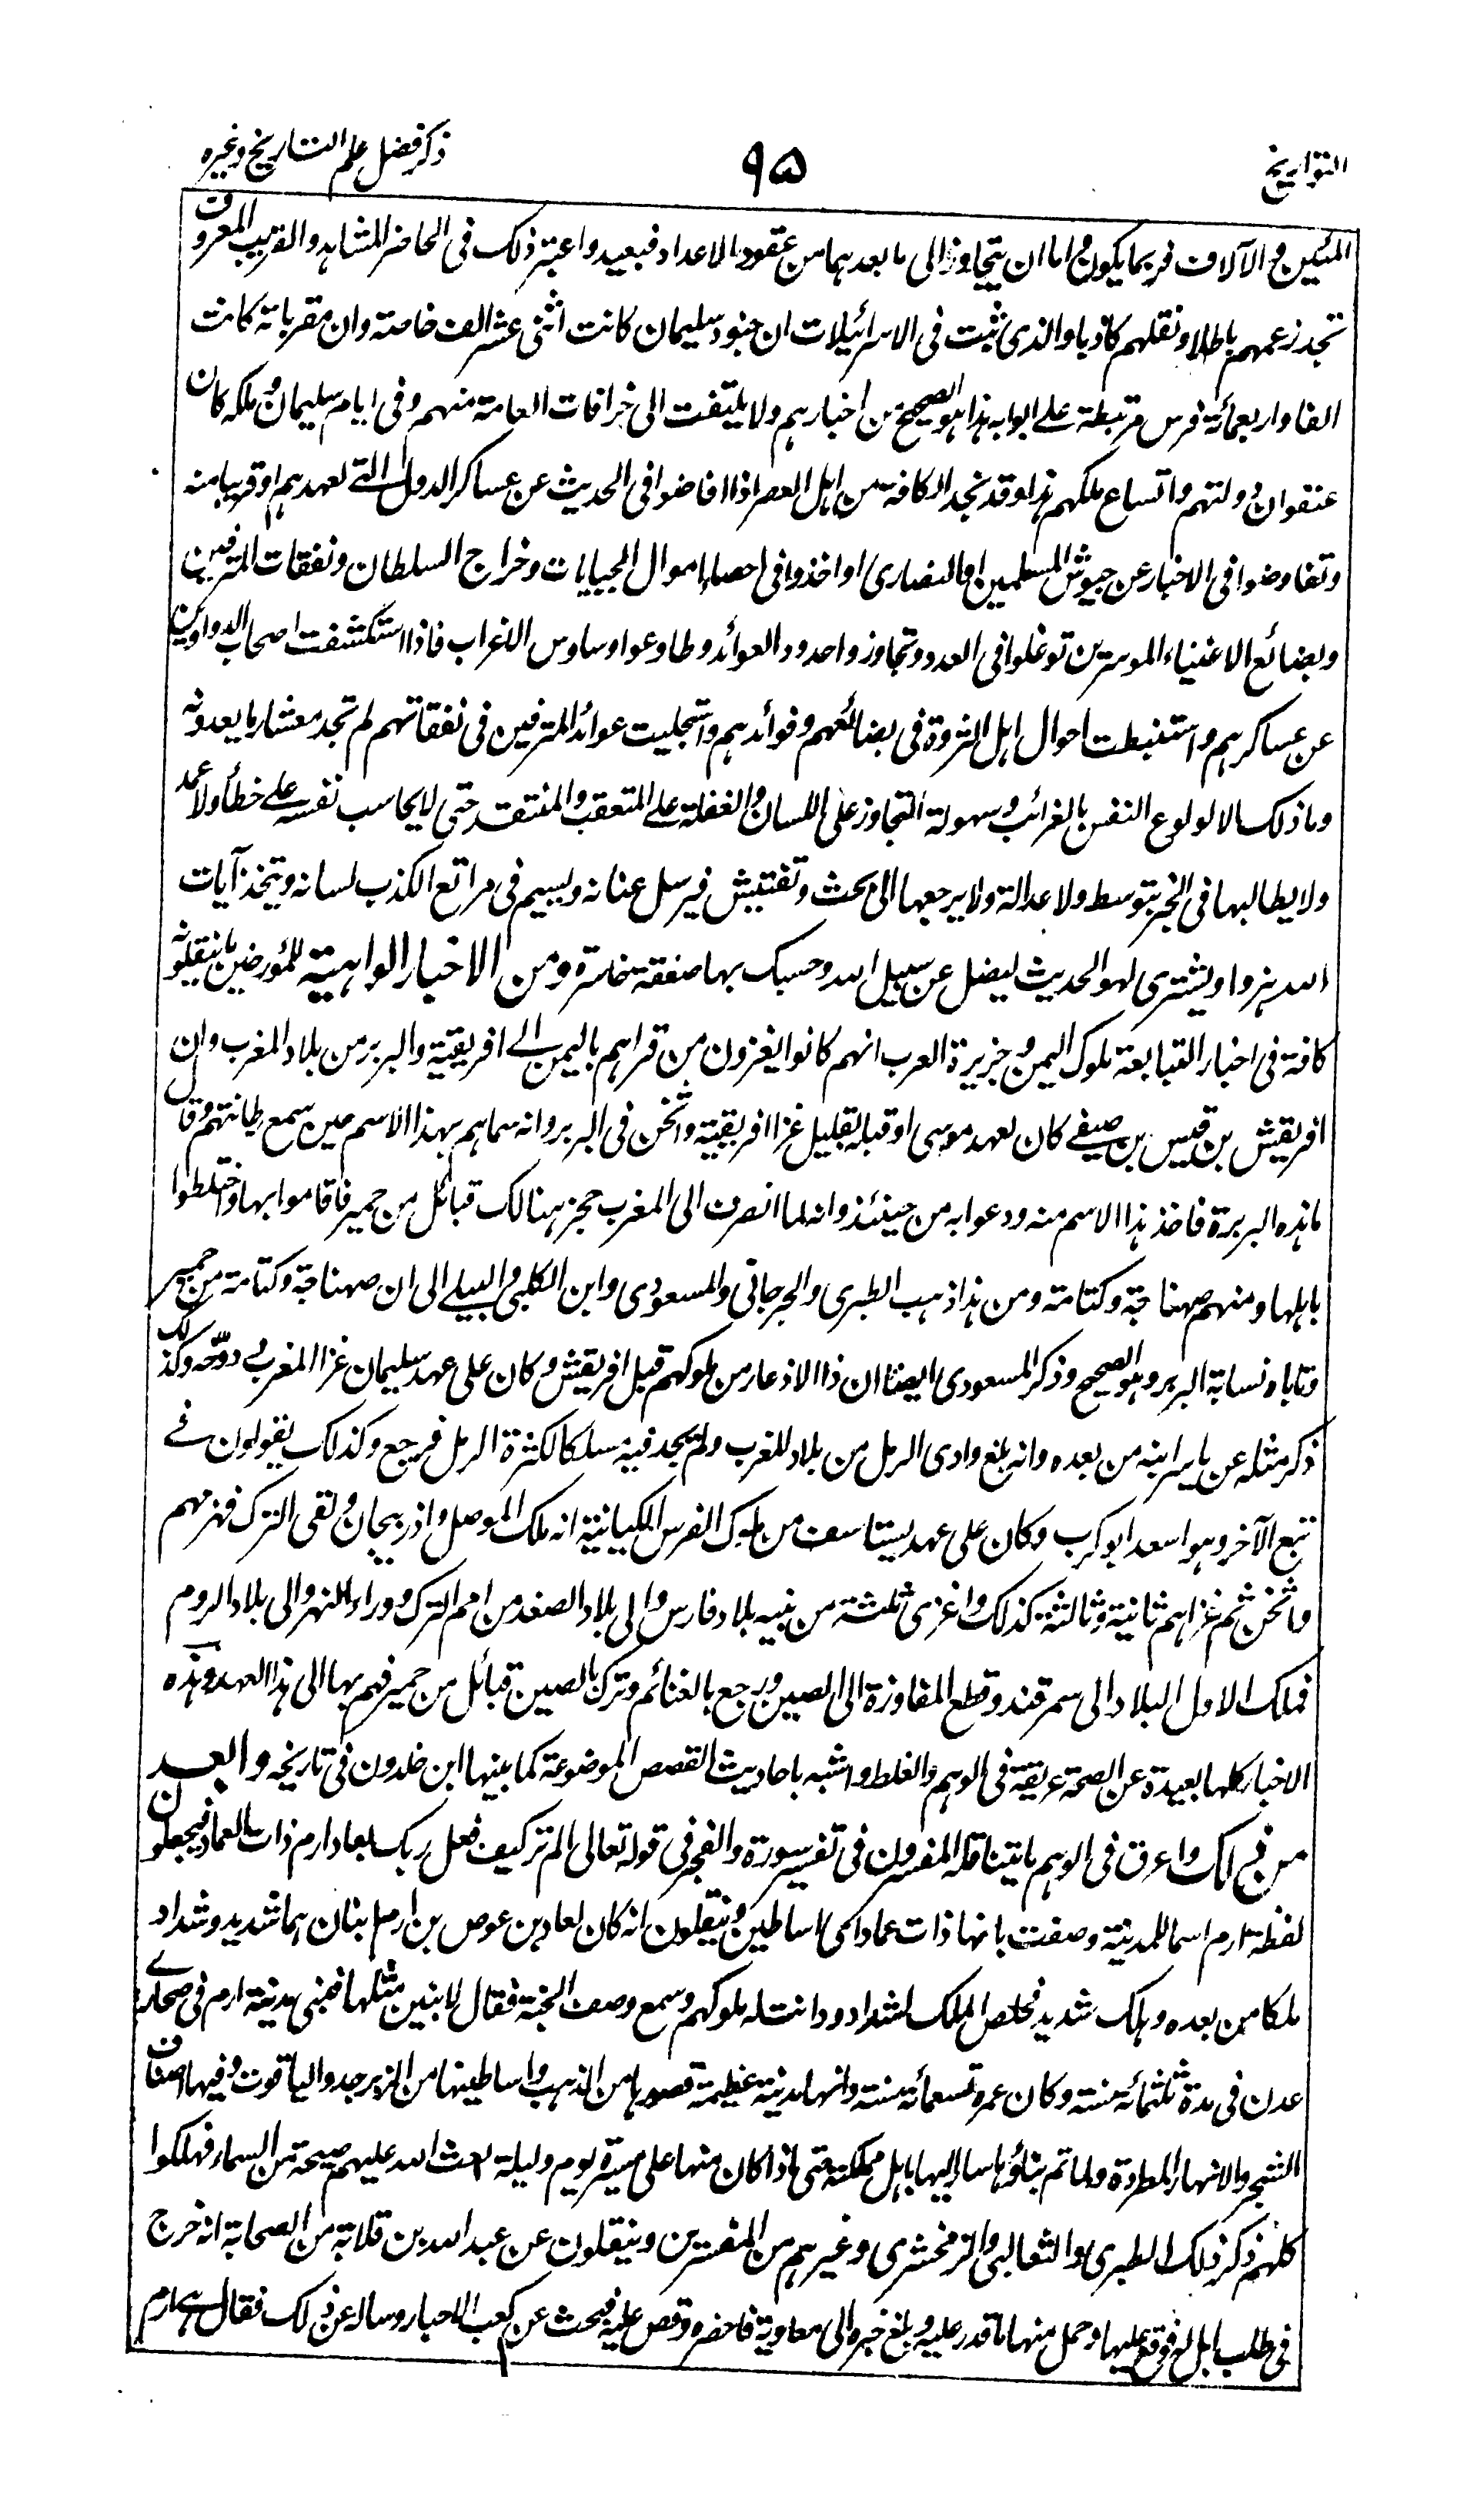 التواريخ ٩٥ ذكر فضل علم التاريخ وغيره
المئين والآلاف فربما يكون واما ان يتجاوز الى ما بعدهما من عقود الاعداد فبعيد واعتبر ذلك فى الحاضر المشاهد والقريب المعروف
تجد زعمهم باطلا ونقلهم كاذبا والذى ثبت فى الاسرائيلات ان جنود سليمان كانت اثنى عشر الف خاصته وان مقرباته كانت
الفا واربعمائة فرس مرتبطة على ابوابه هذا هو الصحيح من اخبارهم ولا يلتفت الى خرافات العامة منهم وفى ايام سليمان وملكه كان
عنفوان دولتهم واتساع ملكهم هذا وقد نجد الكافة من اهل العصر اذا افاضوا فى الحديث عن عساكر الدول التى لعهدهم او قريبا منه
وتفاوضوا فى الاخبار عن جيوش المسلمين او النصارى او اخذوا فى احصاء اموال الجبايات وخراج السلطان ونفقات المترفين
وبضائع الاغنياء الموسرين توغلوا فى العدد وتجاوزوا حدود العوائد وطاوعوا وساوس الاغراب فاذا استكشفت اصحاب الدواوين
عن عساكرهم واستنبطت احوال اهل الثروة فى بضائعهم وفوائدهم واستجليت عوائد المترفين فى نفقاتهم لم تجد معشار ما يعدونه
وما ذلك الا لولوع النفس بالغرائب وسهولة التجاوز على اللسان والغفلة على المتعقب والمنتقد حتى لا يحاسب نفسه على خطأ ولا عمد
ولا يطالبها فى الخبر بتوسط ولا عدالة ولا يرجعها الى بحث وتفتيش فيرسل عنانه ويسيم فى مراتع الكذب لسانه ويتخذ آيات
الله هزوا ويشترى لهو الحديث ليضل عن سبيل الله وحسبك بها صفقة خاسرة ومن الاخبار الواهية للمؤرخين ما ينقلونه
كافة فى اخبار التبابعة ملوك اليمن وجزيرة العرب انهم كانوا يغزون من قراهم باليمن الى افريقية والبربر من بلاد المغرب وان
افريقش بن قيس بن صيفى كان لعهد موسى او قبله بقليل غزا افريقية واثخن فى البربر وانه سماهم بهذا الاسم حين سمع رطانتهم وقال
ما هذه البربرة فاخذ هذا الاسم منه ودعوا به من حينئذ وانه لما انصرف الى المغرب حجز هنالك قبائل من حمير فاقاموا بها واختلطوا
باهلها ومنهم صنهاجة وكتامة ومن هذا ذهب الطبرى والجرجانى والمسعودى وابن الكلبى والبيلى الى ان صنهاجة وكتامة من حمير
وتاباه نسابة البربر وهو الصحيح وذكر المسعودى ايضا ان ذا الاذعار من ملوكهم قبل افريقش وكان على عهد سليمان غزا المغرب ودوخه وكذلك
ذكر مثله عن ياسر ابنه من بعده وانه بلغ وادى الرمل من بلاد المغرب ولم يجد فيه مسلكا لكثرة الرمل فرجع وكذلك يقولون فى
تبع الآخر وهو اسعد ابو كرب وكان على عهد يستاسف من ملوك الفرس الكيانية انه ملك الموصل واذربيجان ولقى الترك فهزمهم
واثخن ثم غزاهم ثانية وثالثة كذلك واغزى ثلثة من بنيه بلاد فارس والى بلاد الصغد من امم الترك وراء النهر والى بلاد الروم
فملك الاول البلاد الى سمرقند وقطع المفازة الى الصين ورجع بالغنائم وترك بالصين قبائل من حمير فهم بها الى هذا العهد وهذه
الاخبار كلها بعيدة عن الصحة عريقة فى الوهم والغلط واشبه باحاديث القصص الموضوعة كما بينها ابن خلدون فى تاريخه وابعد
من ذلك واعرق فى الوهم ما يتناقله المفسرون فى تفسير سورة والفجر فى قوله تعالى الم تر كيف فعل ربك بعاد ارم ذات العماد فيجعلون
لفظة ارم اسما لمدينة وصفت بانها ذات عماد اى اساطين وينقلون انه كان لعاد بن عوص بن ارم ابنان هما شديد وشداد
ملكا من بعده وهلك شديد فخلص الملك لشداد ودانت له ملوكهم وسمع وصف الجنة فقال لابنين مثلها فبنى مدينة ارم فى صحارى
عدن فى مدة ثلثمائة سنة وكان عمره تسعمائة سنة وانها مدينة عظيمة قصورها من الذهب واساطينها من الزبرجد والياقوت وفيها اصناف
الشجر والانهار المطردة ولما تم بناؤها سار اليها باهل مملكته حتى اذا كان منها على مسيرة يوم وليلة بعث الله عليهم صيحة من السماء فهلكوا
كلهم ذكر ذلك الطبرى والثعالبى والزمخشرى وغيرهم من المفسرين وينقلون عن عبد الله بن قلابة من الصحابة انه خرج
فى طلب ابل له فوقع عليها وحمل منها ما قدر عليه وبلغ خبره الى معاوية فاحضره وقص عليه فبحث عن كعب الاحبار وساله عن ذلك فقال هى ارم